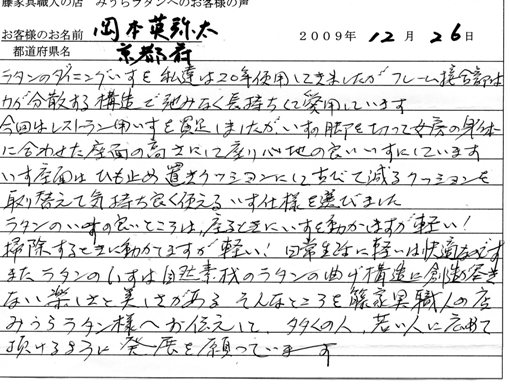 籐家具職人の店 みうらラタンへのお客様の声
お客様のお名前 岡本英弥太 2009年 12月 26日
都道府県名 京都府
ラタンのダイニングいすを私達は20年使用してきましたがフレーム接合部は
力が分散する構造で弛みなく長持ちして愛用しています
今回はレストラン用いすを買足しましたがいすの脚を切って女房の身体
に合わせた座面の高さにして座り心地の良いいすにしています
いす座面はひも止め置きクッションにして古びて減るクッションを
取り替えて気持ち良く使えるいす仕様を選びました
ラタンのいすの良いところは、座るときにいすを動かますが軽い!
掃除するときに動かてますが軽い! 日常生活に軽いは快適なです
またラタンのいすは自然素材のラタンの曲げ構造に創造容き
ない楽しさと美しさがある そんなところを籐家具職人の店
みうらラタン様へお伝えして、多くの人、若い人に広めて
頂けるように発展を願っています